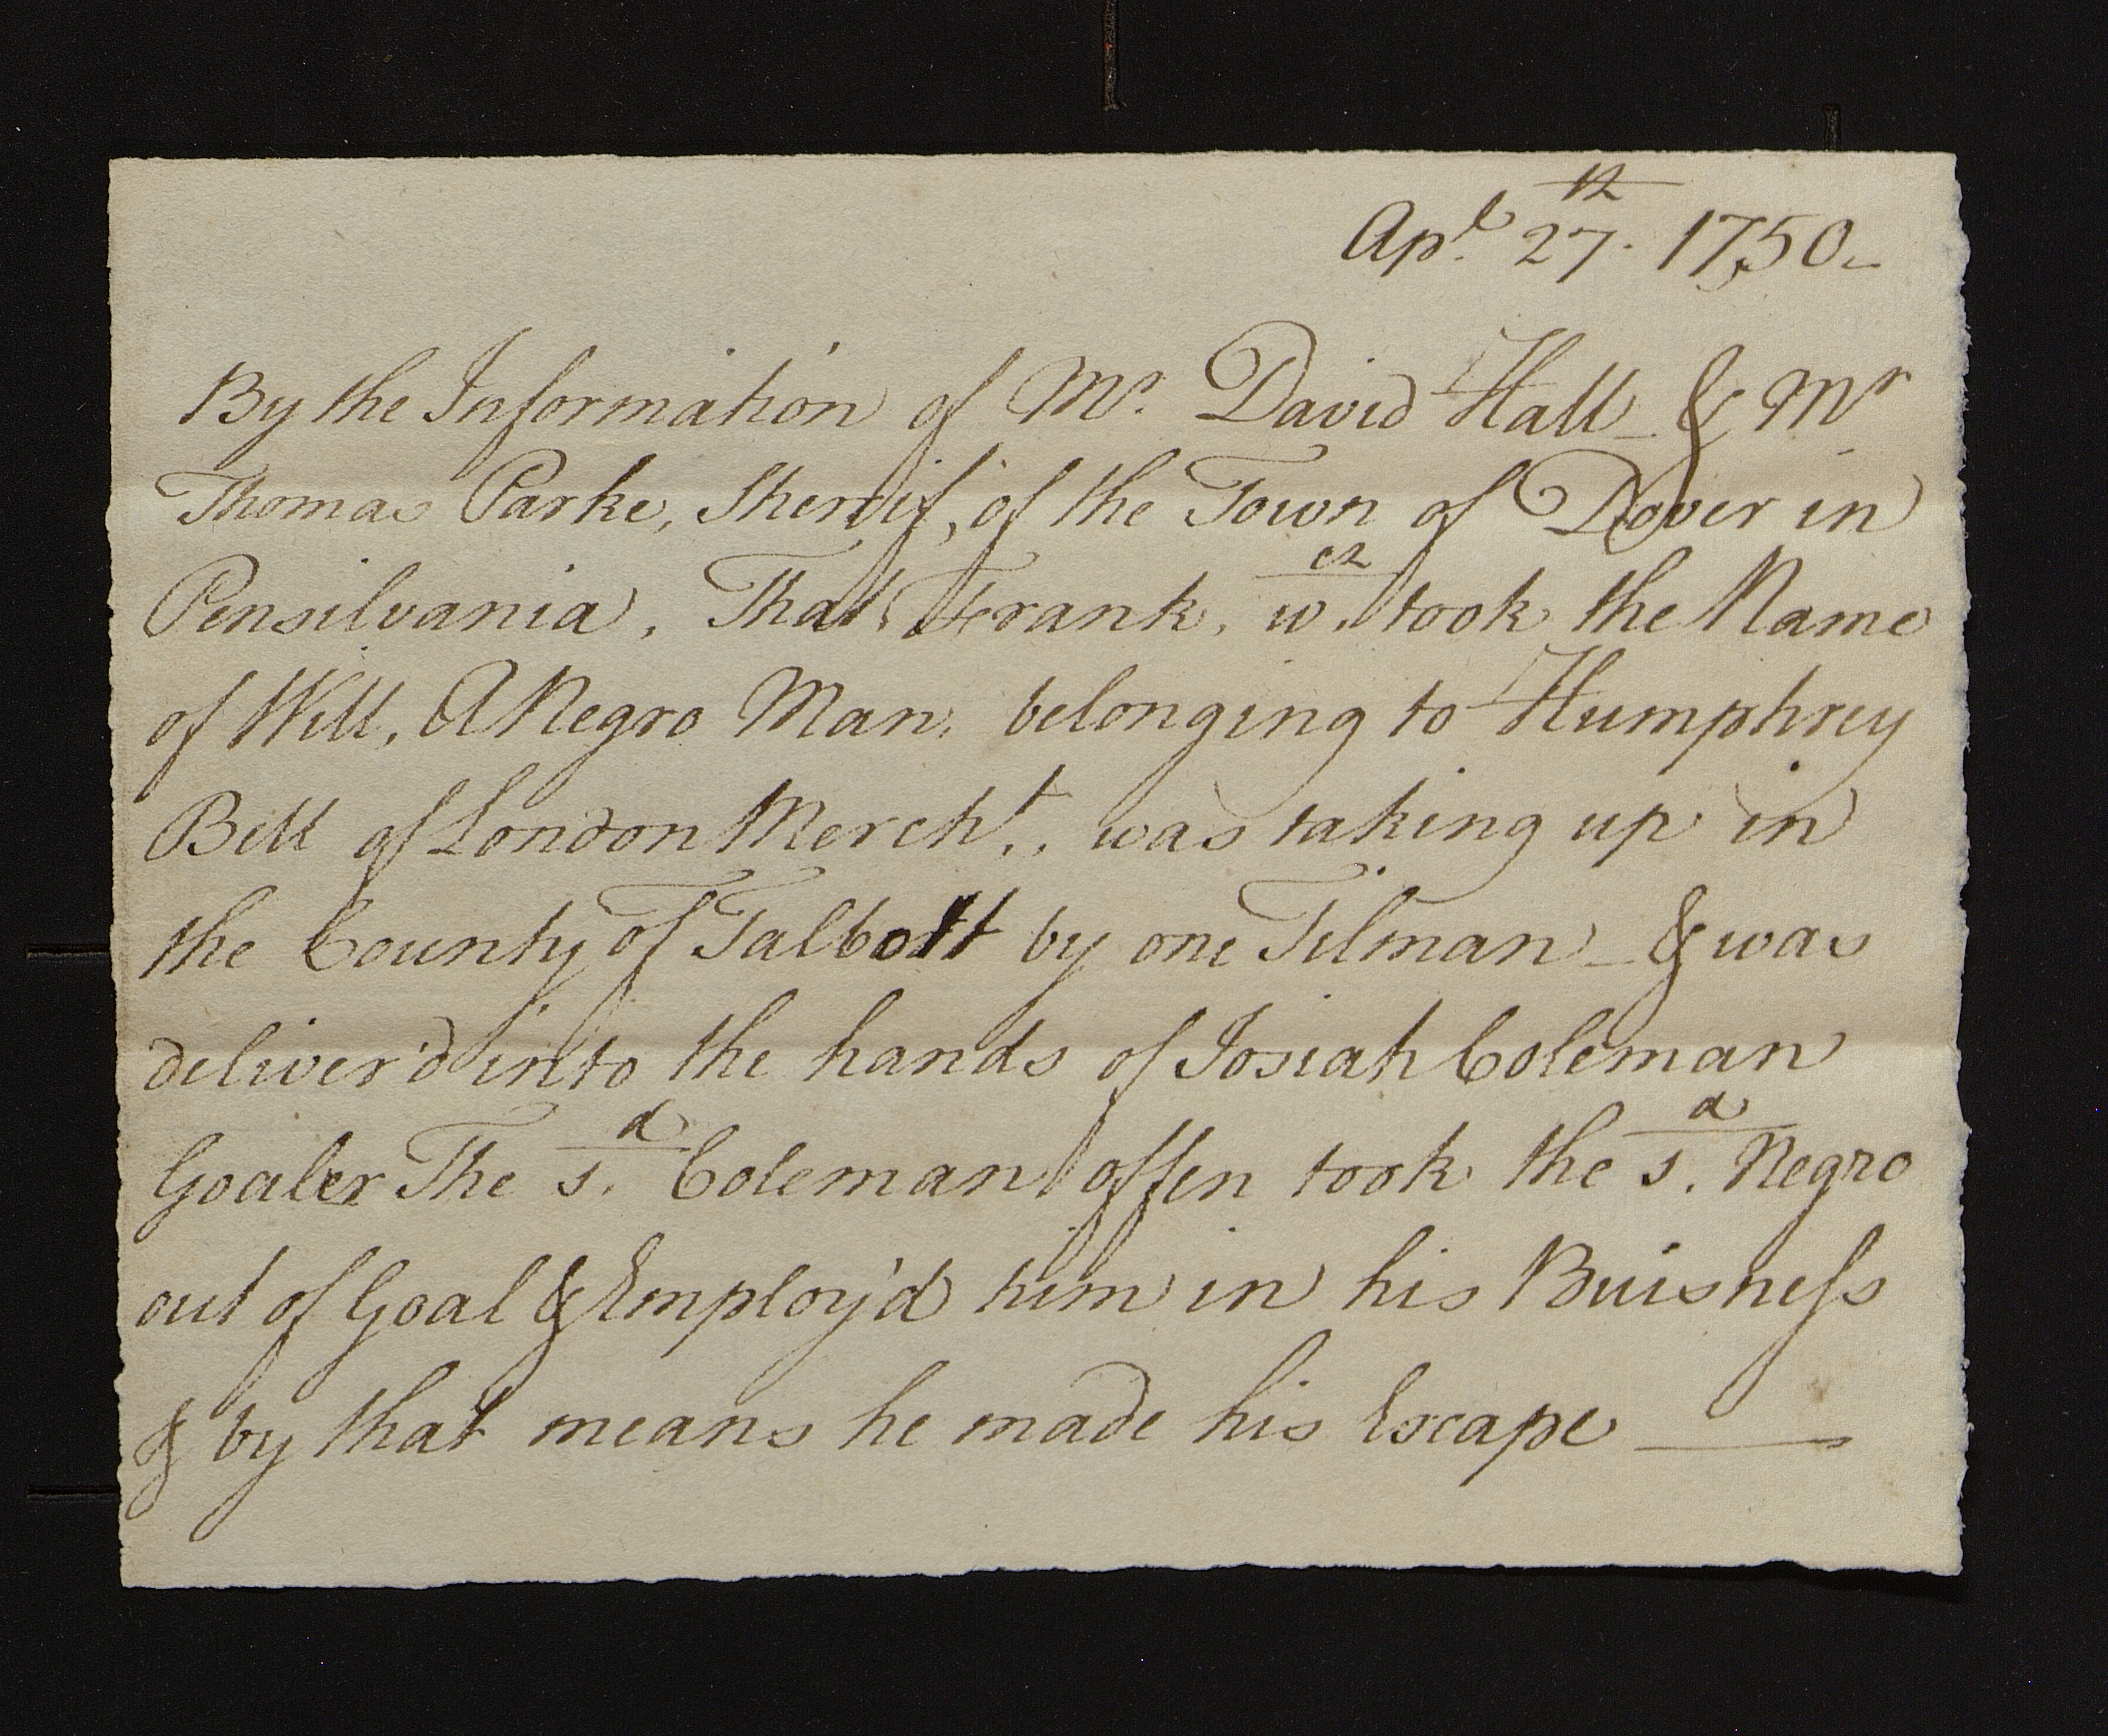 Apl. 27th. 1750
By the Information of Mr. David Hall & Mr
Thomas Parke, Sherrif, of the Town of Dover in
Pensilvania, That Frank, wch. took the Name
of Will, A Negro Man, belonging to Humphrey
Bell of London Mercht., was taking up in
the County of Talbott by one Tilman & was
deliver'd into the hands of Josiah Coleman
Goaler The sd. Coleman offen took the sd. Negro
out of Goal & Employ'd him in his Buisness
& by that means he made his Escape